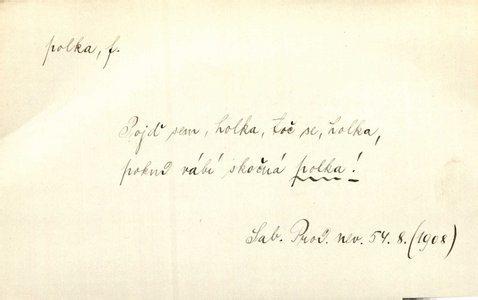 polka, f.
Pojď sem, holka, toč se, holka,
pokud vábí skočná polka!
Sab. Prod. nev. 54. 8. (1908)